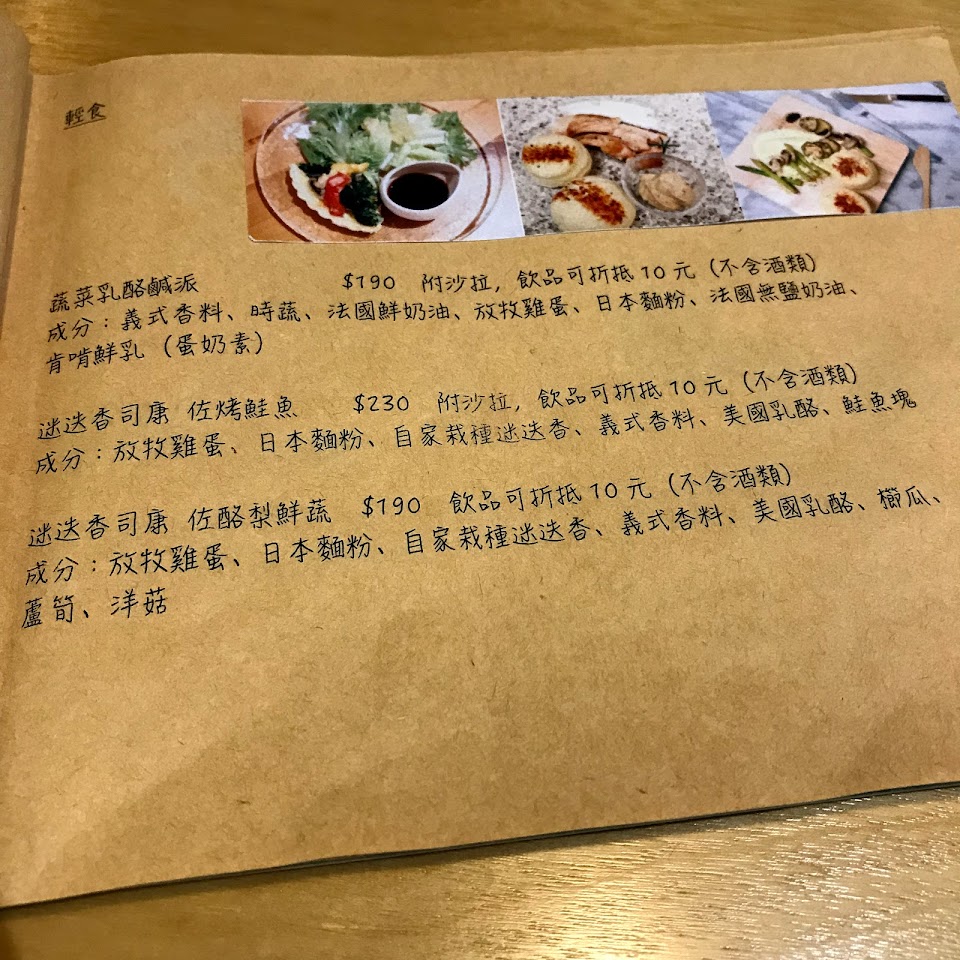 輕食
蔬菜乳酪鹹派 $190 附沙拉, 飲品可折抵10元 (不含酒類)
成分：義式香料、時蔬、法國鮮奶油、放牧雞蛋、日本麵粉、法國無鹽奶油、
肯啃鮮乳 (蛋奶素)
迷迭香司康 佐烤鮭魚 $230 附沙拉, 飲品可折抵10元 (不含酒類)
成分：放牧雞蛋、日本麵粉、自家栽種迷迭香、義式香料、美國乳酪、鮭魚塊
迷迭香司康 佐酪梨鮮蔬 $190 飲品可折抵10元 (不含酒類)
成分：放牧雞蛋、日本麵粉、自家栽種迷迭香、義式香料、美國乳酪、櫛瓜、
蘆筍、洋菇